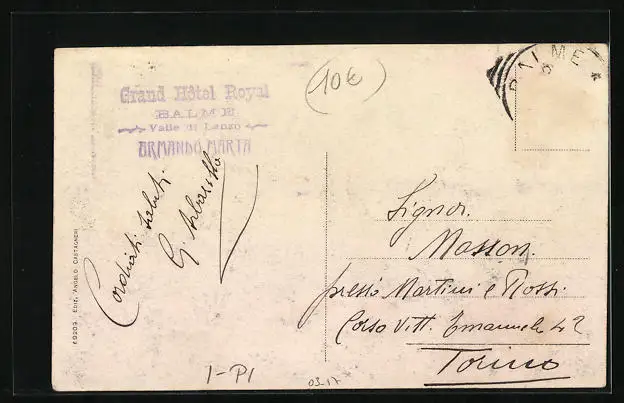 Grand Hôtel Royal
BALME
Valle di Lanzo
ARMANDO MARTA
10€
BALME
Cordiali saluti
G.
Signor.
Masson.
presso Martini e Rossi.
Corso Vitt. Emanuele 42
Torino
69209 Ediz. Angelo Castagneri
I-PI
03.17